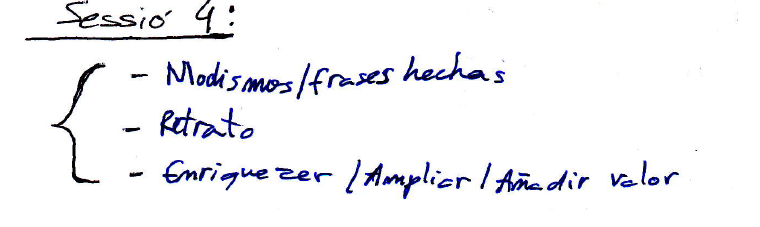 Sessió 4:
- Modismos/frases hechas
- Retrato
- Enriquezer / Ampliar / Añadir valor